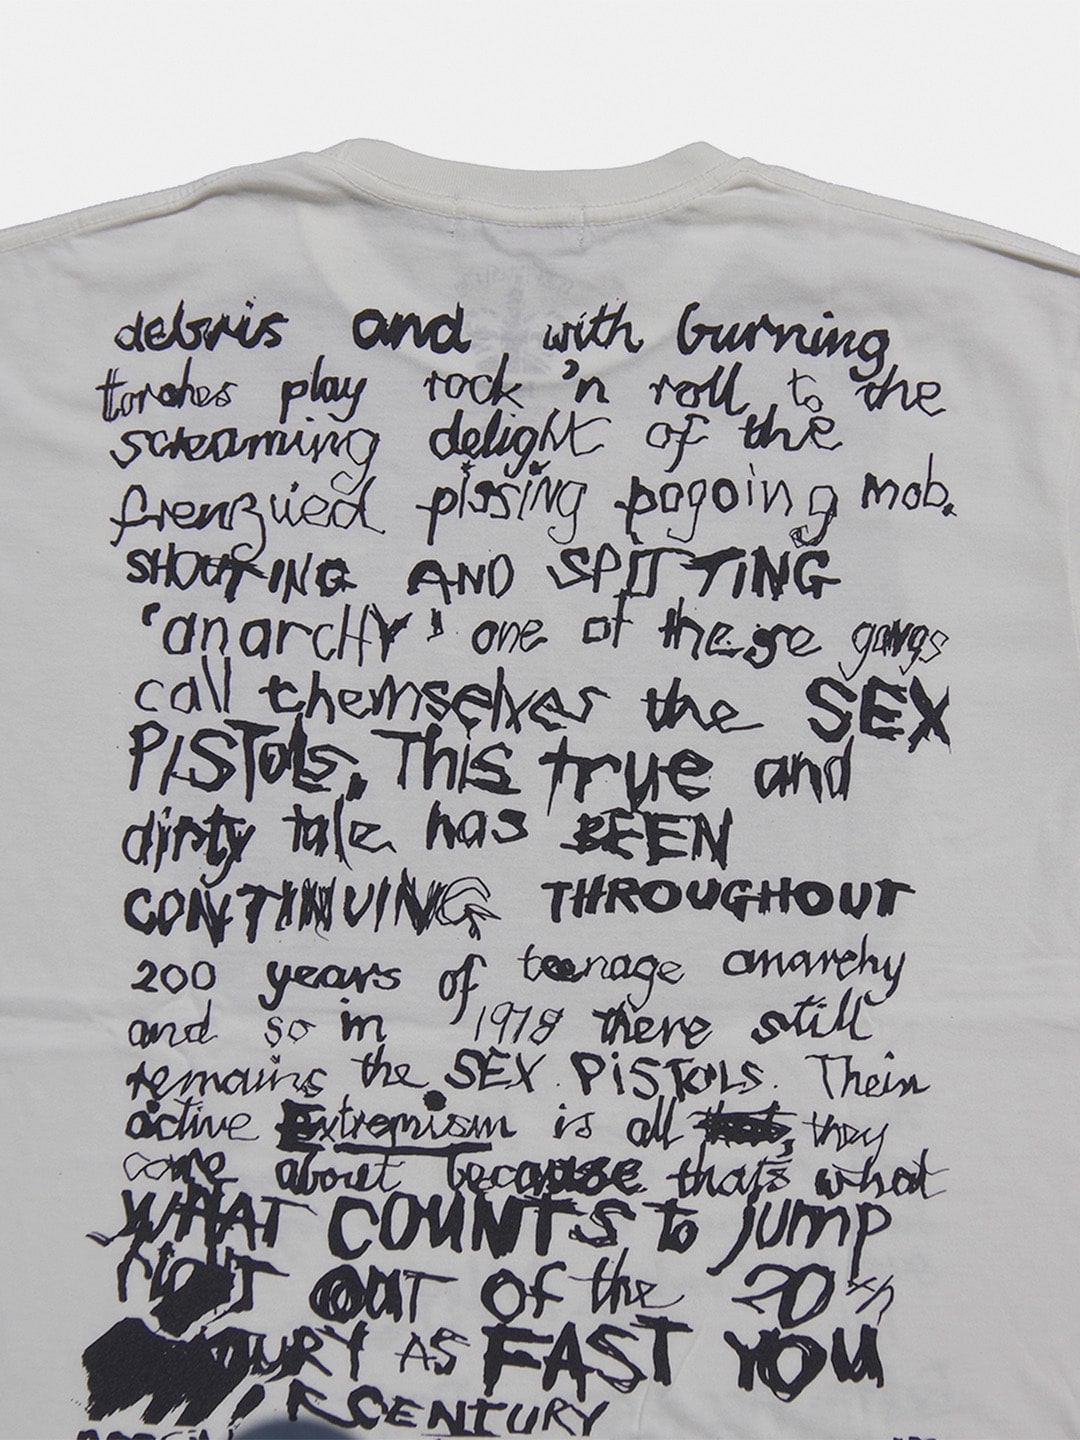 debris and with burning
torches play rock 'n roll to the
screaming delight of the
frenzied pissing pogoing mob.
SHOUTING AND SPITTING
'anarchy' one of these gangs
call themselves the SEX
PISTOLS. This true and
dirty tale has BEEN
CONTINUING THROUGHOUT
200 years of teenage anarchy
and so in 1978 there still
remains the SEX PISTOLS. Their
active Extremism is all they
care about because thats what
WHAT COUNTS to jump
right OUT of the 20th
AS FAST YOU
CENTURY